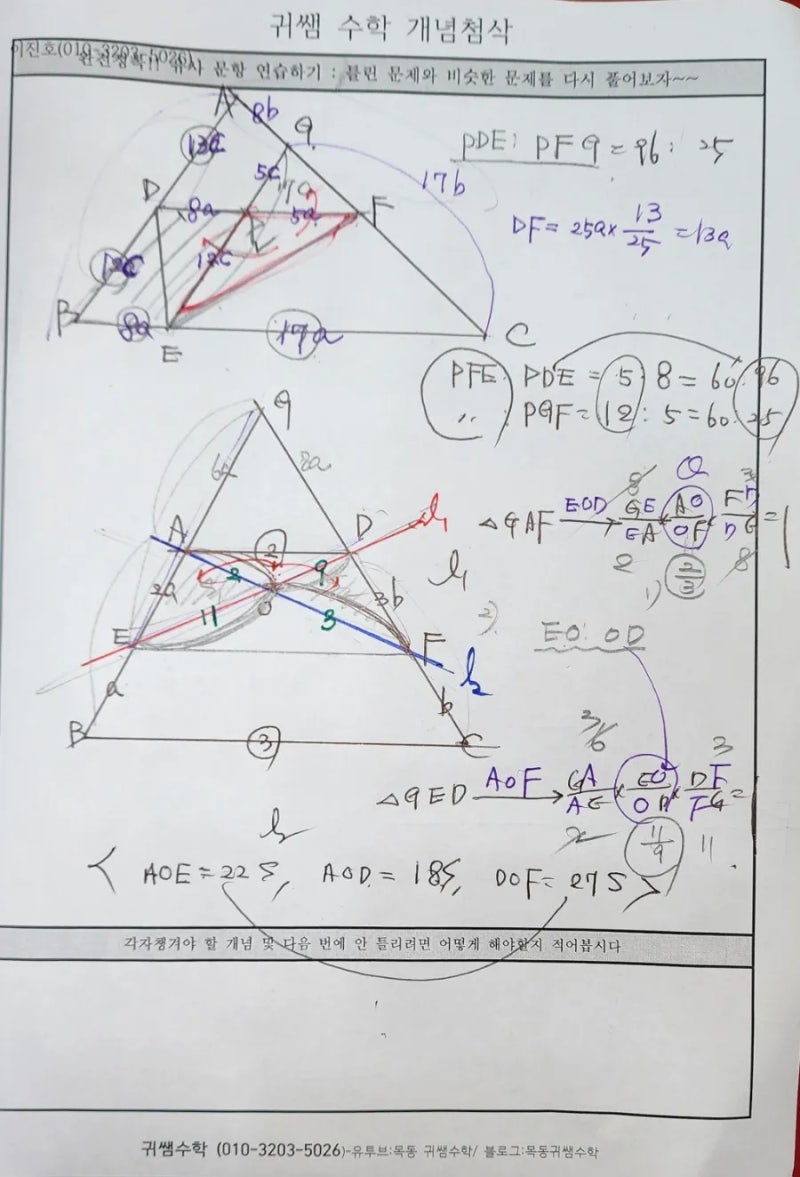 귀쌤 수학 개념첨삭
이진호(010-3203-5026)
완전정복!! 유사 문항 연습하기 : 틀린 문제와 비슷한 문제를 다시 풀어보자~~
A 8b G
13C 5C 17C 17b
D 8a 5a F
12C 12C
B 8a E 17a C
PDE : PFG = 96 : 25
DF = 25a × 13/25 = 13a
PFE : PDE = 5 : 8 = 60 : 96
〃 : PGF = 12 : 5 = 60 : 25
G
6a 8a
A 2 D l₁
2a 2 9 3b l₁
E 11 O 3 F l₂
a b
B 3 C
△GAF EOD → GE/EA × AO/OF × FD/DG = 1
8 2 2/3 3 8
1)
2) EO : OD
△GED AOF → GA/AE × EO/OD × DF/FG =
3 6 2 11/9 3 11
l₂
< AOE = 22S, AOD = 18S, DOF = 27S >
각자챙겨야 할 개념 및 다음 번에 안 틀리려면 어떻게 해야할지 적어봅시다
귀쌤수학 (010-3203-5026)-유투브:목동 귀쌤수학/ 블로그:목동귀쌤수학